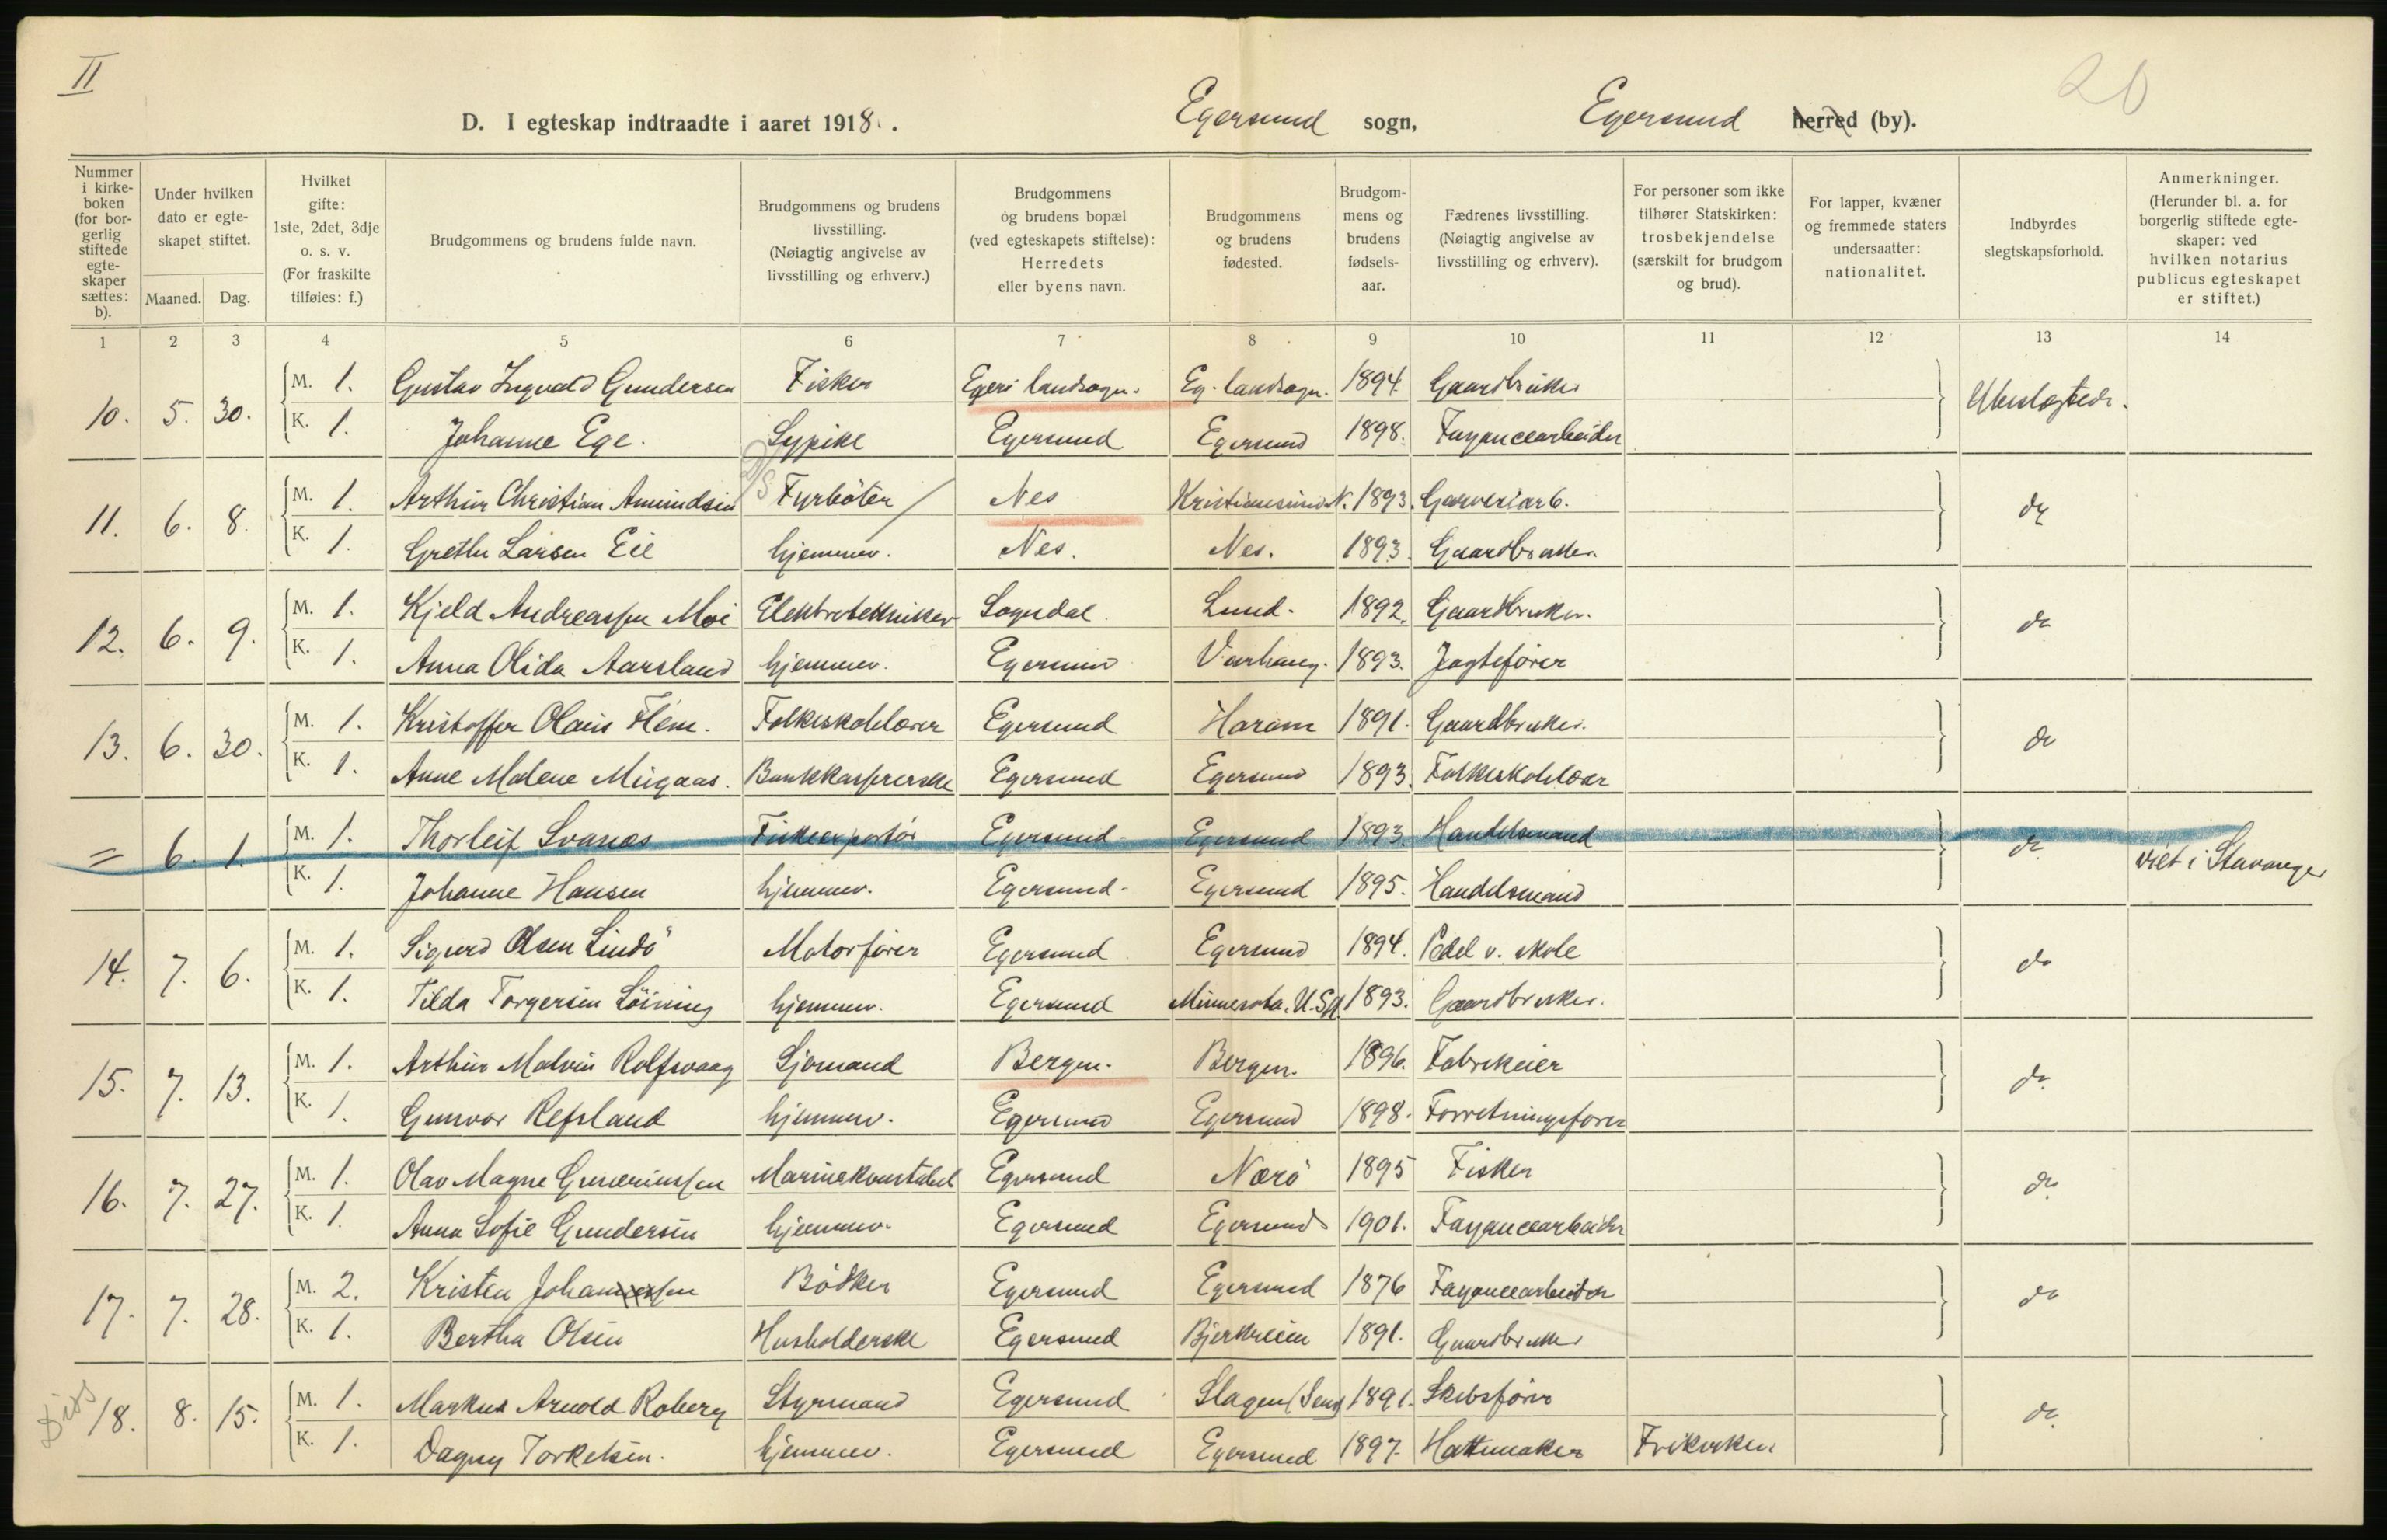 II
20
D. I egteskap indtraadte i aaret 1918. Egersund sogn, Egersund herred (by).
Nummer i kirkeboken (for borgerlig stiftede egteskaper sættes: b).
Under hvilken dato er egteskapet stiftet.
Maaned. Dag.
Hvilket gifte: 1ste, 2det, 3dje o. s. v. (For fraskilte tilføies: f.)
Brudgommens og brudens fulde navn.
Brudgommens og brudens livsstilling. (Nøiagtig angivelse av livsstilling og erhverv.)
Brudgommens og brudens bopæl (ved egteskapets stiftelse): Herredets eller byens navn.
Brudgommens og brudens fødested.
Brudgommens og brudens fødselsaar.
Fædrenes livsstilling. (Nøiagtig angivelse av livsstilling og erhverv).
For personer som ikke tilhører Statskirken: trosbekjendelse (særskilt for brudgom og brud).
For lapper, kvæner og fremmede staters undersaatter: nationalitet.
Indbyrdes slegtskapsforhold.
Anmerkninger. (Herunder bl. a. for borgerlig stiftede egteskaper: ved hvilken notarius publicus egteskapet er stiftet.)
1 2 3 4 5 6 7 8 9 10 11 12 13 14
10. 5. 30. M. 1. Gustav Ingvald Gundersen Fisker Egers landsogn. Eg. landsogn. 1894 Gaardbruker Ubeslægtede.
K. 1. Johanne Ege. Sypike Egersund Egersund 1898. Fayancearbeider
11. 6. 8. M. 1. Arthur Christian Amundsen Fyrbøter Nes Kristiansund N. 1893. Garveriarb. do
K. 1. Grethe Larsen Eie hjemmev. Nes. Nes. 1893. Gaardbruker.
12. 6. 9. M. 1. Kjeld Andreassen Moi Elektrotekniker Sogndal. Lund. 1892. Gaardbruker. do
K. 1. Anna Olida Aarsland hjemmev. Egersund Varhaug. 1893. Jagtefører
13. 6. 30. M. 1. Kristoffer Olaus Flem. Folkeskolelærer Egersund Haram 1891. Gaardbruker. do
K. 1. Anne Malene Mugaas. Bankkassererske Egersund Egersund 1893. Folkeskolelærer
= 6. 1. M. 1. Thorleif Svanæs Fiskeexportør Egersund Egersund 1893. Handelsmand do viet i Stavanger
K. 1. Johanne Hansen hjemmev. Egersund. Egersund 1895. Handelsmand
14. 7. 6. M. 1. Sigurd Olsen Lindø Motorfører Egersund Egersund 1894. Pedel v. skole do
K. 1. Tilda Torgersen Løining hjemmev. Egersund Minnesota. U.S.A. 1893. Gaardbruker.
15. 7. 13. M. 1. Arthur Malvin Rolfsvaag Sjømand Bergen. Bergen. 1896. Fabrikeier do.
K. 1. Gunvor Refsland hjemmev. Egersund Egersund 1898. Forretningsfører
16. 7. 27. M. 1. Olav Magne Guneriussen Marinekonstabel Egersund Nærø 1895 Fisker do.
K. 1. Anna Sofie Gundersen hjemmev. Egersund Egersund 1901. Fayancearbeider
17. 7. 28. M. 2. Kristen Johannessen Bødker Egersund Egersund 1876 Fayancearbeider do
K. 1. Bertha Olsen Husholderske Egersund Bjerkreim 1891. Gaardbruker
Diss 18. 8. 15. M. 1. Markus Arnold Roberg Styrmand Egersund Slagen (Sem) 1891. Skibsfører do.
K. 1. Dagny Torkelsen. hjemmev. Egersund Egersund 1897. Hattemaker Frikirken